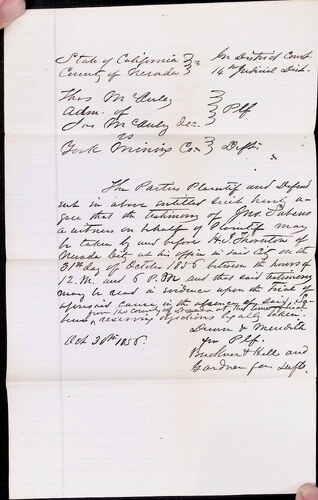 State of California } ss In District Court
County of Nevada } 14th Judicial Dist.
Thos McAuley }
Adm. of } Plf
Jas McAuley Dec. }
vs
York Mining Co } Defts.
The Parties Plaintiff and Defend
ent in above entitled suit hereby a
gree that the testimony of Jno.
a witness on behalf of Plaintiff may
be taken by and before H. Thornton of
Nevada City at his office in said City on the
31st day of October 1856 between the hours of
12. M. and 6 P.M. and that said testimony
may be used in evidence upon the Trial of
aforesaid cause in the absence of said
from the County of Nevada at the time of trial
reserving objections legally taken.
Oct 30th 1856. Dunn & Meredith
for Plf.
Buckner & Hill and
Gardner for Defts.